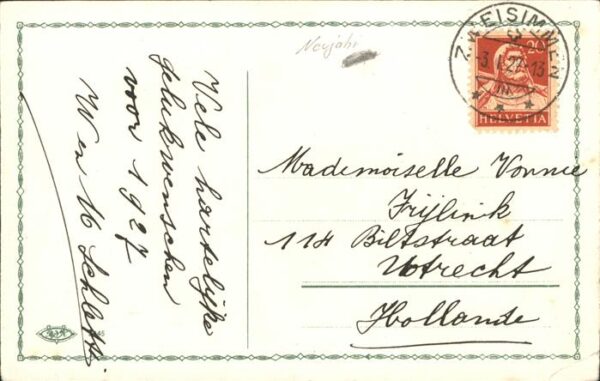 Neujahr
ZWEISIMMEN
-3.I.27-13
20
HELVETIA
Vele hartelijke
gelukwenschen
voor 1927
W en M Schlett
Mademoiselle Vonnie
Frijlink
114 Biltstraat
Utrecht
Hollande